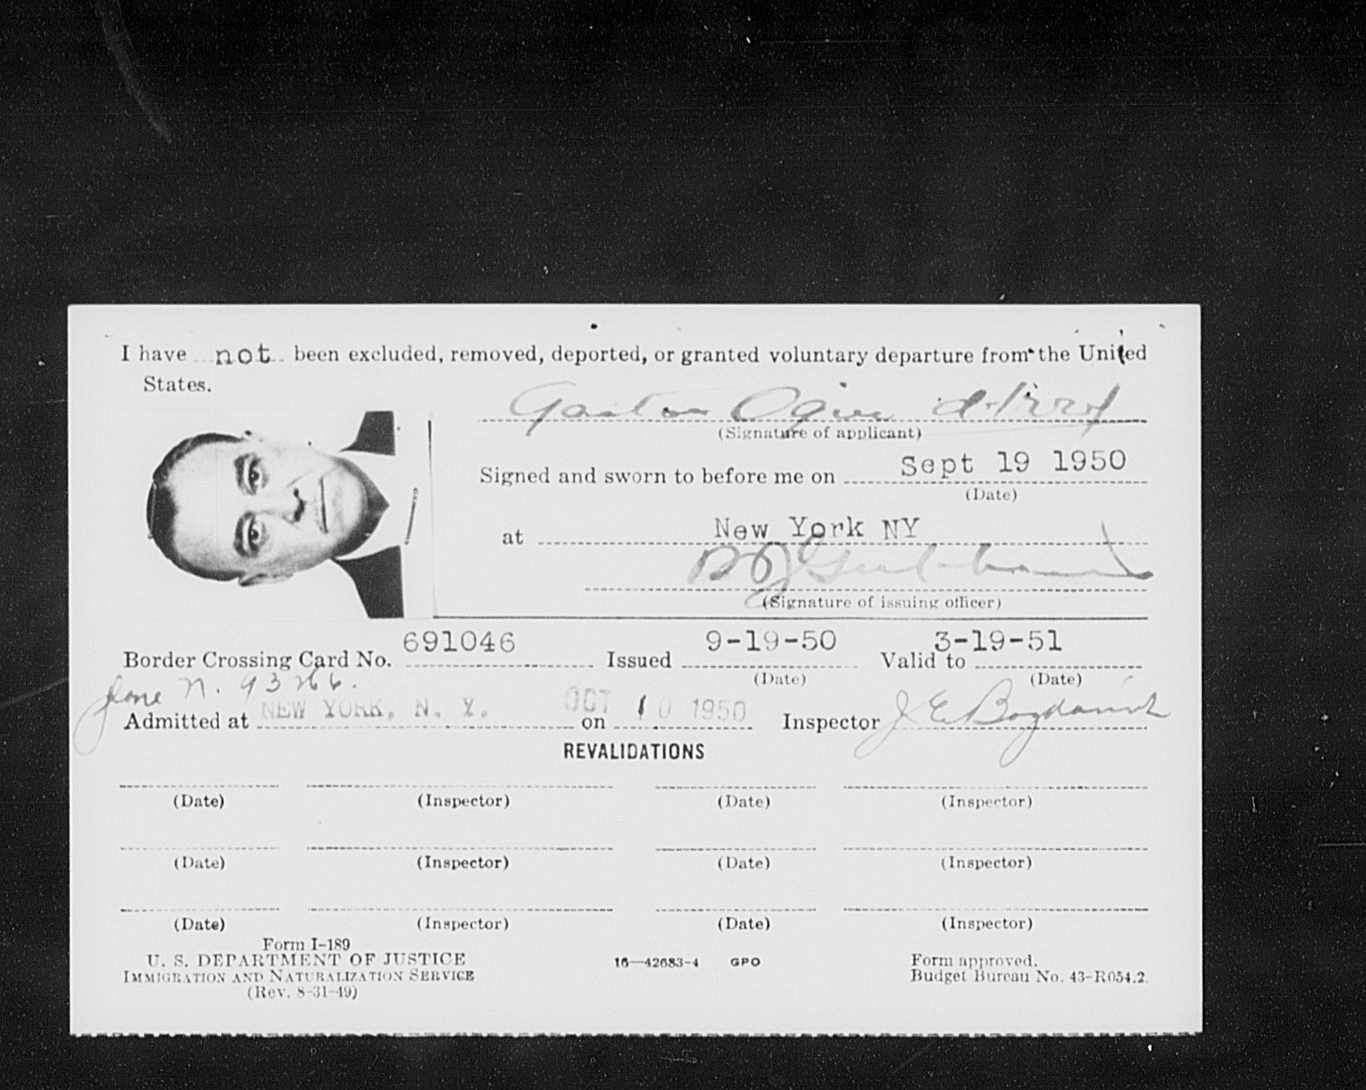 I have not been excluded, removed, deported, or granted voluntary departure from the United
States.
Gaston Ogier
(Signature of applicant)
Signed and sworn to before me on Sept 19 1950
(Date)
at New York NY
(Signature of issuing officer)
Border Crossing Card No. 691046 Issued 9-19-50 Valid to 3-19-51
(Date) (Date)
Admitted at NEW YORK, N. Y. on OCT 10 1950 Inspector J E
REVALIDATIONS
(Date) (Inspector) (Date) (Inspector)
(Date) (Inspector) (Date) (Inspector)
(Date) (Inspector) (Date) (Inspector)
Form I-189
U. S. DEPARTMENT OF JUSTICE 16—42683-4 GPO Form approved.
IMMIGRATION AND NATURALIZATION SERVICE Budget Bureau No. 43-R054.2.
(Rev. 8-31-49)